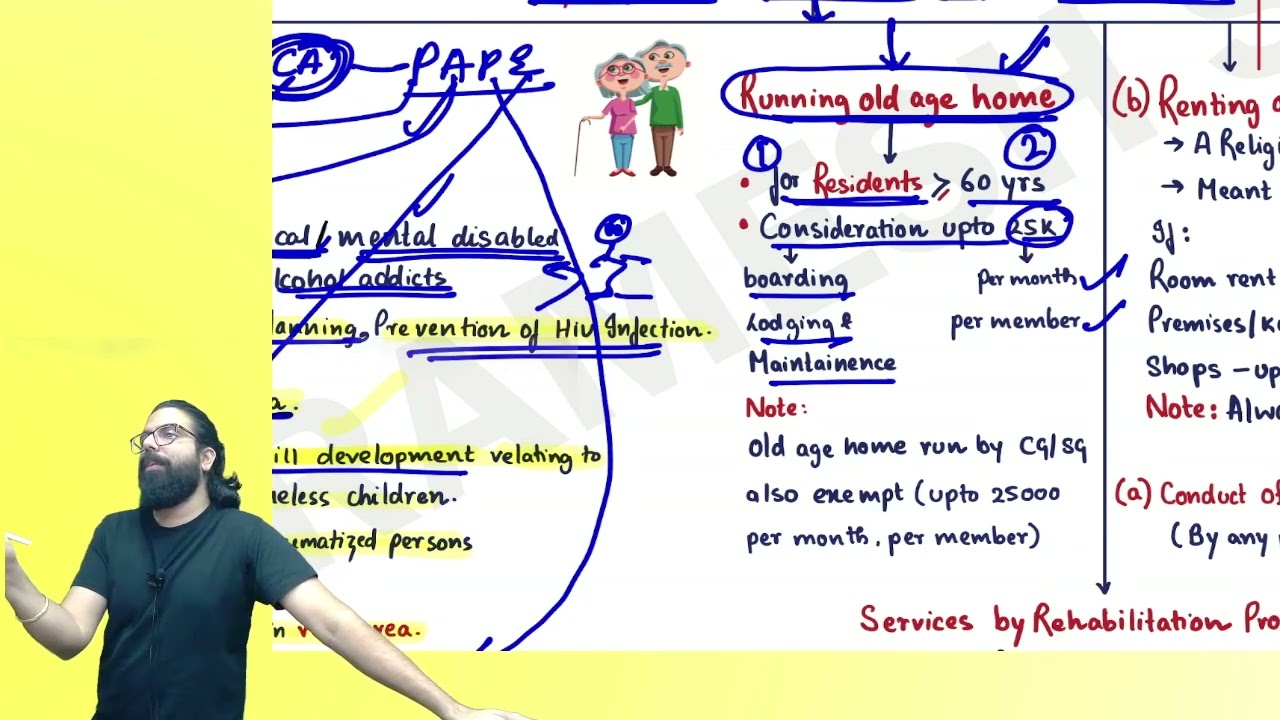 CA PAPE
cal/mental disabled
lcohol addicts
lanning, Prevention of HIV Infection.
a.
ill development relating to
eless children.
umatized persons
in rural area.
Running old age home
1 2
• for Residents ≥ 60 yrs
• Consideration upto 25k
boarding
Lodging &
Maintainence
per month
per member
Note:
Old age home run by CG/SG
also exempt (upto 25000
per month, per member)
(b) Renting o
→ A Religi
→ Meant
If:
Room rent
Premises/Ka
Shops – up
Note: Alwa
(a) Conduct of
(By any
Services by Rehabilitation Pro
RAMESH S